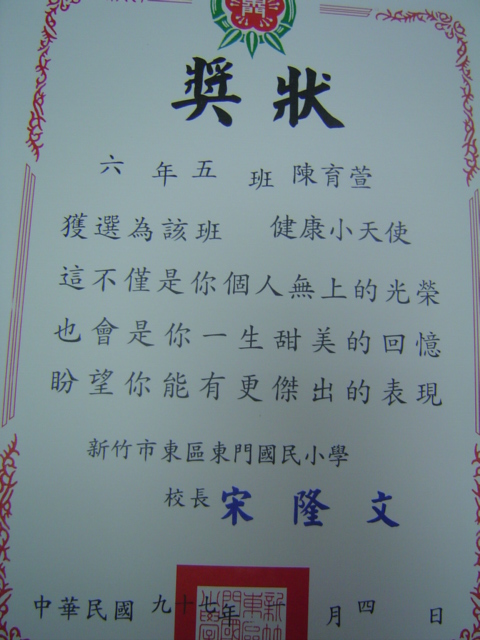 獎狀
六年五班 陳育萱
獲選為該班 健康小天使
這不僅是你個人無上的光榮
也會是你一生甜美的回憶
盼望你能有更傑出的表現
新竹市東區東門國民小學
校長 宋隆文
中華民國 九十七年 月四 日